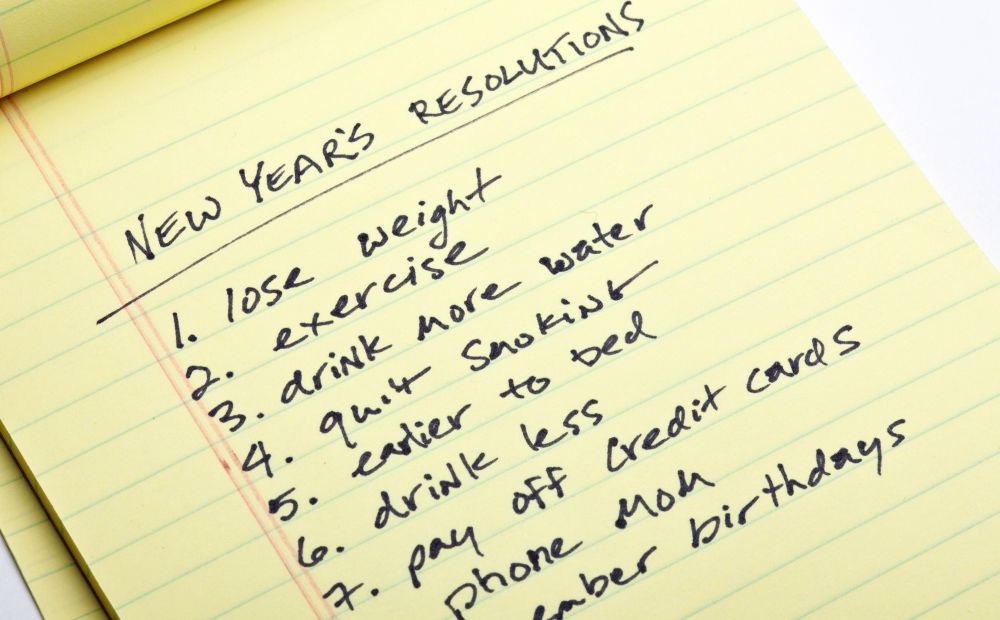 NEW YEAR'S RESOLUTIONS
1. lose weight
2. exercise
3. drink more water
4. quit smoking
5. earlier to bed
6. drink less
7. pay off credit cards
phone Mom
ember birthdays